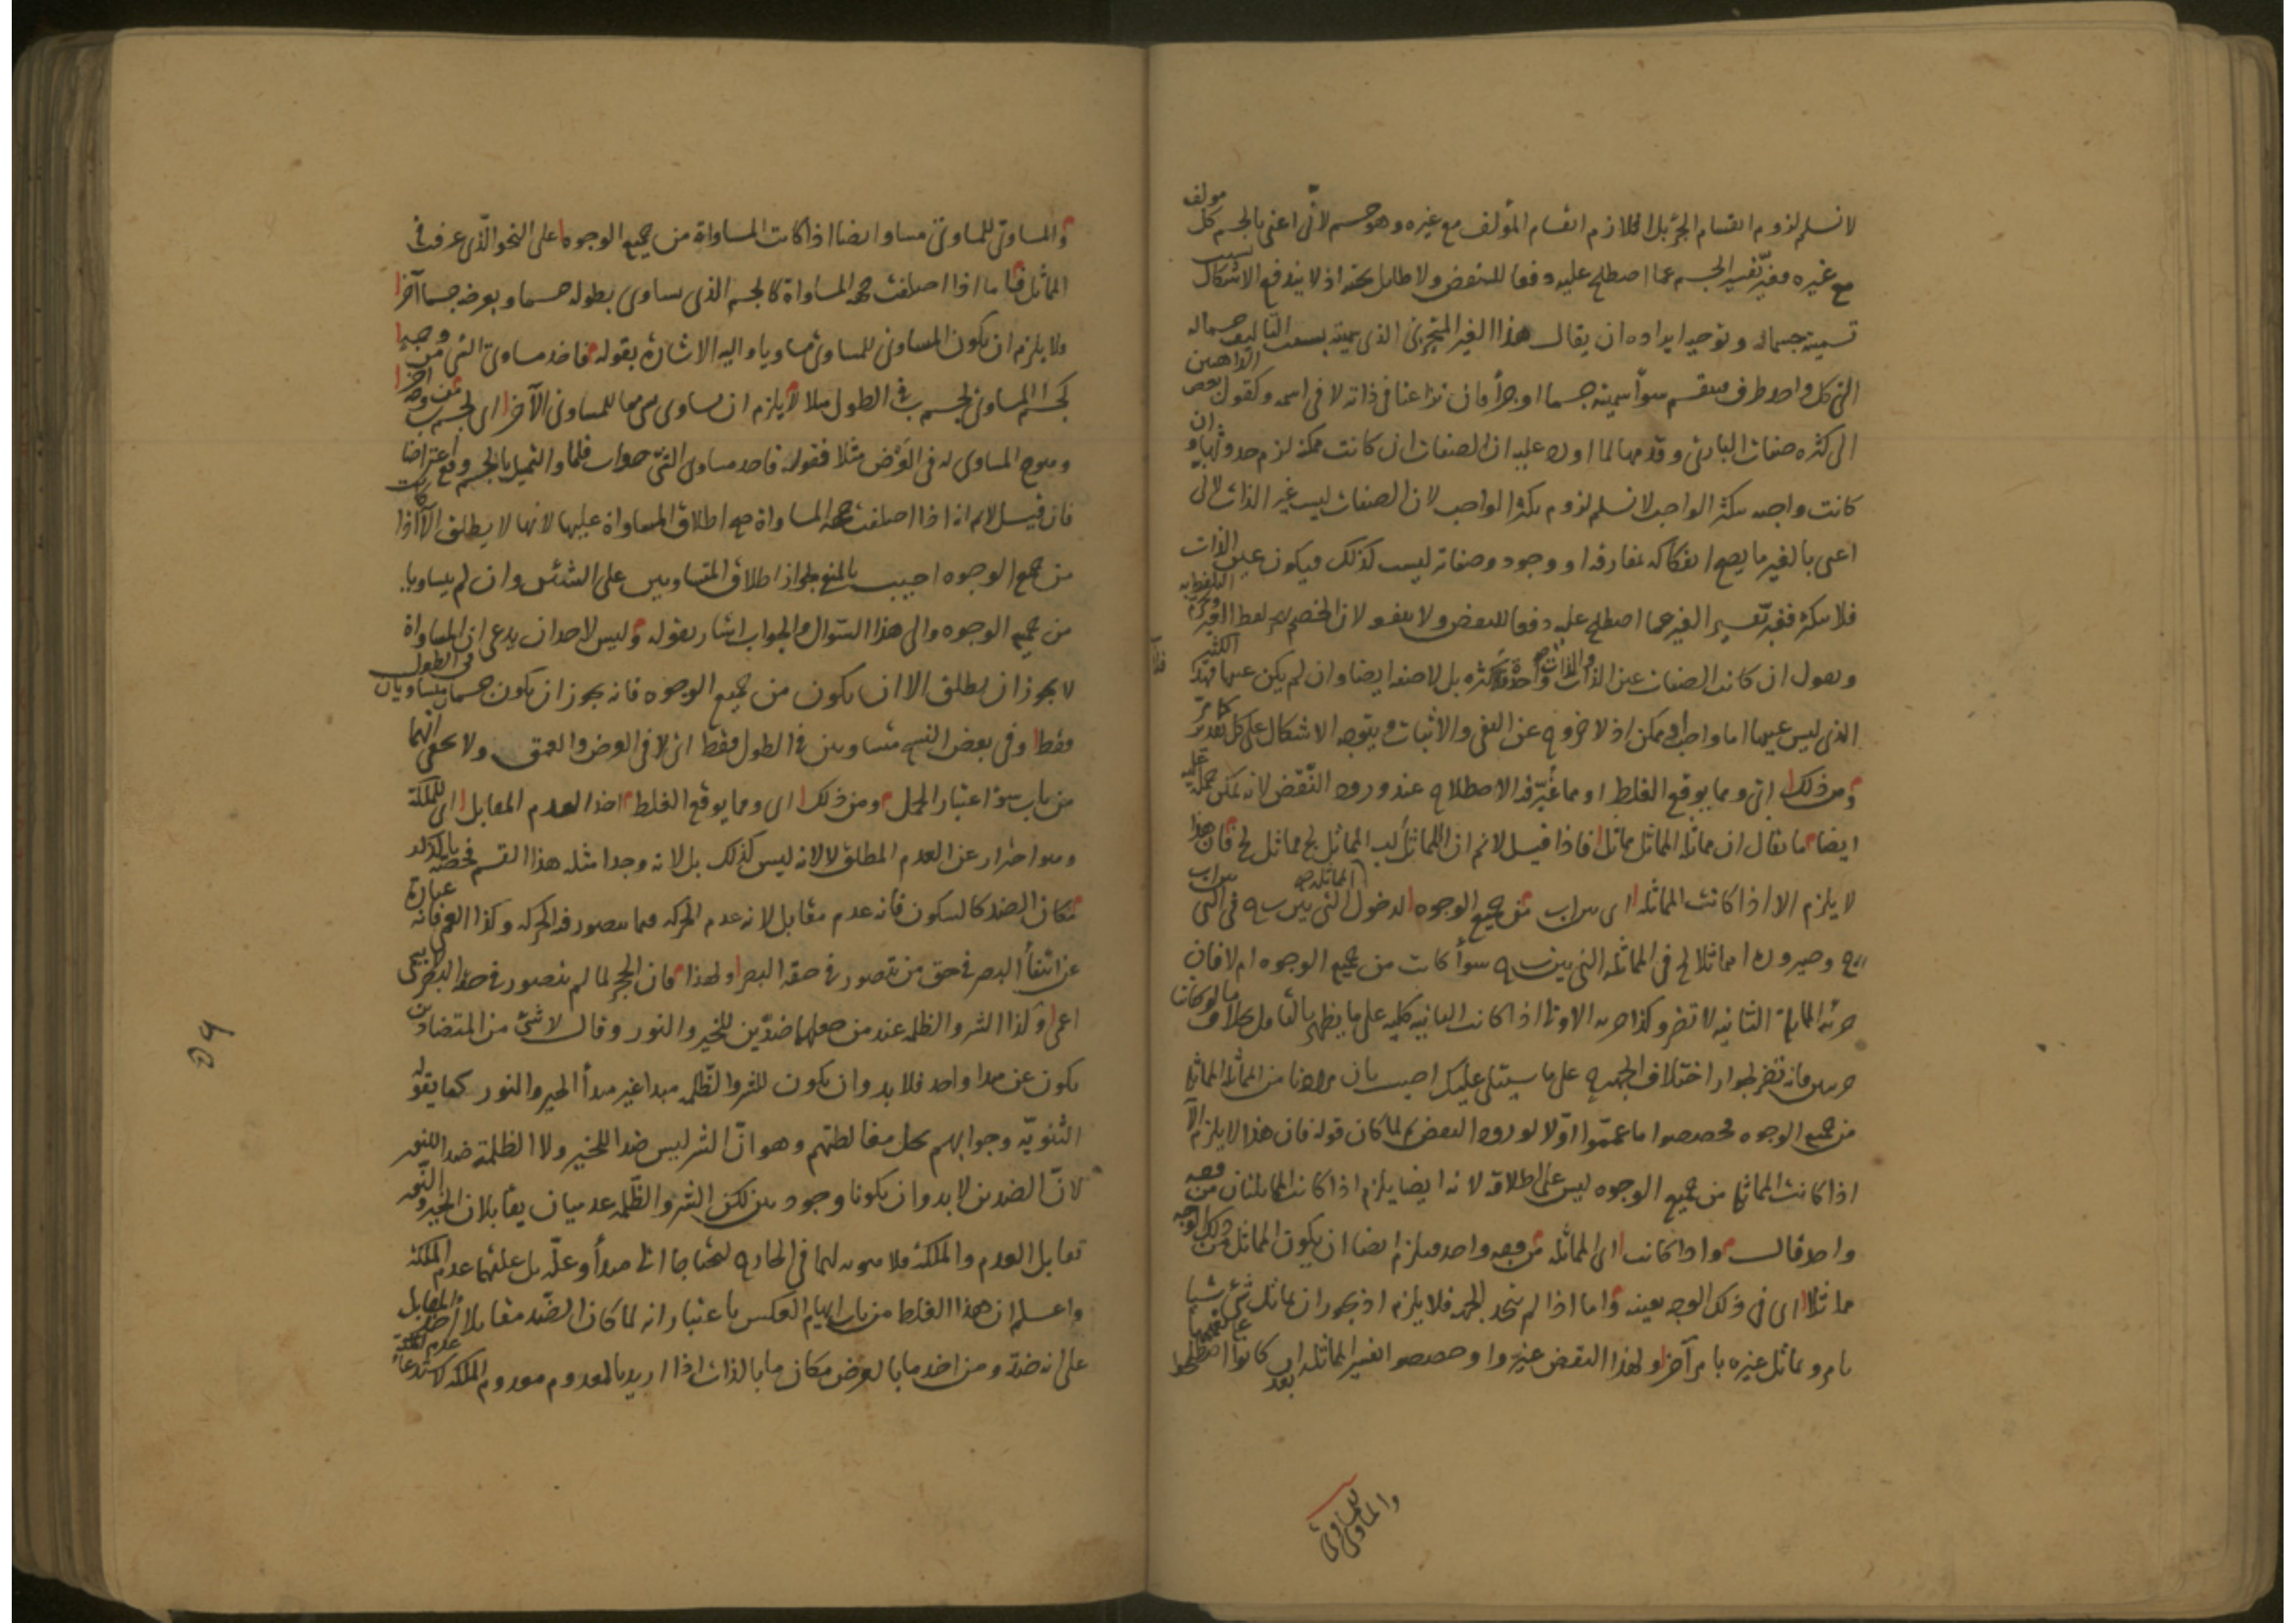 لا نسلم لزوم انقسام الجزء بل اللازم انقسام المؤلف مع غيره وهو جسم لأني اعنى بالجسم كل مولف
مع غيره فغير تفسير الجسم عما اصطلح عليه دفعا للنقض ولا طايل تحته اذ لا يندفع الاشكال بسبب
تسميته جسما وتوجيه ايراده ان يقال هذا الغير المتجزئ الذى سميته بسبب التاليف جسما له
الى كل واحد طرف فينقسم سواء سميته جسما او جزأ فان نزاعنا فى ذاته لا فى اسمه وكقول بعض الذاهبين
الى كثرة صفات البارئ وقدمها لما اورد عليه ان الصفات ان كانت ممكنة لزم حدوثها وان
كانت واجبه تكثر الواجب لا نسلم لزوم تكثر الواجب لان الصفات ليست غير الذات لانى
اعنى بالغير ما يصح انفكاكه بمفارقة او وجود وصفاته ليست كذلك فيكون عين الذات
فلا تكثر فغير تفسير الغير عما اصطلح عليه دفعا للنقض ولا ينفعه لان الخصم لفظ الغير
ويقول ان كانت الصفات عين الذات والذات واحدة فلا كثرة بل لا صفة ايضا وان لم يكن عينها فهذا الكثير
الذى ليس عينها اما واجب او ممكن اذ لا خروج عن النفى والاثبات ويتوجه الاشكال على كل تقدير كما مر
ومن ذلك اى ومما يوقع الغلط او مما غير فيه الاصطلاح عند ورود النقض لانه يمكن حمله عليه
ايضا ما يقال ان مماثل المماثل مماثل فاذا قيل لا نم ان المماثل لب المماثل لج مماثل لج فان هذا
لا يلزم الا اذا كانت المماثلة اى بين اب من جميع الوجوه لدخول التى بين ب ج فى التى بين اب
اج وصيرورة ا مماثلا لج فى المماثلة التى بين ب ج سواء كانت من جميع الوجوه ام لا فان
جزئية المماثلة الثانية لا تضر وكذا جزئية الاولى اذا كانت الثانيه كليه على ما يظهر بالتأمل بخلاف ما لو كانتا
جزئيتين فانه تضر لجواز اختلاف الجهة على ما سيتلى عليك اجيب بان مرادنا من المماثلة المماثلة
من جميع الوجوه فخصصوا ما عمموا اولا لورود النقض ثم لما كان قوله فان هذا لا يلزم الا
اذا كانت المماثلة من جميع الوجوه ليس على اطلاقه لانه ايضا يلزم اذا كانت المماثلتان من وجه
واحد قال واذا كانت اى المماثلة من وجه واحد فيلزم ايضا ان يكون المماثل من ذلك الوجه
مماثلا اى فى ذلك الوجه بعينه واما اذا لم يتحد الجهة فلا يلزم اذ يجوز ان يماثل شئ شيئا
بامر ويماثل غيره بامر آخر ولهذا النقض غيروا وخصصوا تفسير المماثلة بعد ان كانوا اصطلحوا على تعميمها
والمساوى للمساوى
والمساوى للمساوى مساو ايضا اذا كانت المساواة من جميع الوجوه على النحو الذى عرفت فى
المماثل فاما اذا اختلفت جهة المساواة كالجسم الذى يساوى بطوله جسما وبعرضه جسما آخر
فلا يلزم ان يكون المساوى للمساوى مساويا واليه الاشارة بقوله فاخذ مساوى الشئ من وجه
كجسم المساوى لجسم ب فى الطول مثلا لا يلزم ان يساوى من وجه آخر المساوى الآخر اى لجسم ب
وهو ج المساوى له فى العرض مثلا فقوله فاخذ مساوى الشئ جواب فاما والتمثيل بالجسم وقع اعتراضا
فان قيل لا نم انه اذا اختلفت جهة المساواة صح اطلاق المساواة عليها لانها لا يطلق الا اذا كانت
من جميع الوجوه اجيب بالمنع لجواز اطلاق المتساويين على الشيئين وان لم يتساويا
من جميع الوجوه والى هذا السؤال والجواب اشار بقوله وليس لاحد ان يدعى ان المساواة
لا يجوز ان يطلق الا ان يكون من جميع الوجوه فانه يجوز ان يكون جسمان يتساويان فى الطول
فقط وفى بعض النسخ متساويين فى الطول فقط اى لا فى العرض والعمق ولا يخفى انهما
من باب سوء اعتبار الحمل ومن ذلك اى ومما يوقع الغلط اخذ العدم المقابل اى للملكة
وهو احتراز عن العدم المطلق لا لانه ليس كذلك بل لانه وجد امثلة هذا القسم فخصه بالذكر
مكان الضد كالسكون فانه عدم مقابل لانه عدم الحركة فيما يتصور فيه الحركة وكذا العمى فانه عبارة
عن انتفاء البصر فى حق من يتصور فى حقه البصر ولهذا فان الحجر لما لم يتصور فى حقه البصر لا يسمى
اعمى وكذا الشر والظلمة عند من جعلهما ضدين للخير والنور وقال لا شئ من المتضادين
يكون عن مبدا واحد فلا بد وان يكون للشر والظلمة مبدا غير مبدأ الخير والنور كما يقوله
الثنويّة وجوابهم بحل مغالطتهم وهو انّ الشر ليس ضدا للخير ولا الظلمة ضدا للنور
لانّ الضدين لا بد وان يكونا وجوديين لكن الشر والظلمة عدميان يقابلان الخير والنور
تقابل العدم والملكة فلا هوية لهما فى الخارج ليحتاجا الى مبدأ وعلة بل علتهما عدم الملكة
واعلم ان هذا الغلط من باب ايهام العكس باعتبار انه لما كان الضد مقابلا اخذ المقابل
على انه ضد ومن اخذ ما بالعرض مكان ما بالذات اذا اريد بالمعدوم معدوم الملكة